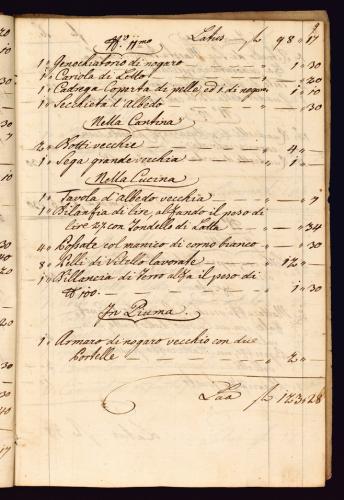 Latus f 98 " 17
1" Genochiatorio di nogaro " 1 " 30
1" Cariola di Lotto " — " 20
1" Cadrega coperta di pelle, ed è di nogaro " 1 " 10
1" Secchieta d'Albedo " — " 30
Nella Cantina
2" Botti vecchie " 4 " —
1" Sega grande vecchia " 1 " —
Nella Cucina
1" Tavola d'albedo vecchia " — " 7
1" Bilanzia di lire, alzando il peso di
lire 27 con Tondello di Latta " — " 34
4" col manico di corno bianco " — " 30
8" Pelli di Vitello lavorate — 12 " —
1" Billancia di ferro alza il peso di
100. — 1 " 30
In Piuma.
1" Armaro di nogaro vecchio con due
Portelle — " 2 " —
Lua f 123 " 28